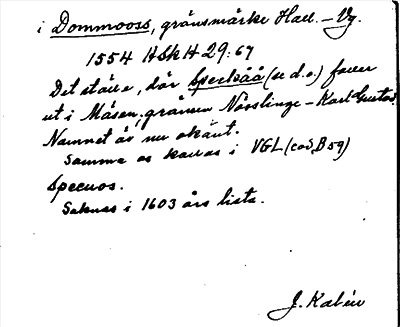 i Dommooss, gränsmärke Hall. – Vg.
1554 HSkH 29:67
Det ställe, där Sperlsåå (se d.o.) faller
ut i Måsen, gränsen Nösslinge – Karl Gustav.
Namnet är nu okänt.
Samma os kallas i VGL (cod. B 59)
Specuos.
Saknas i 1603 års lista.
J. Kalén